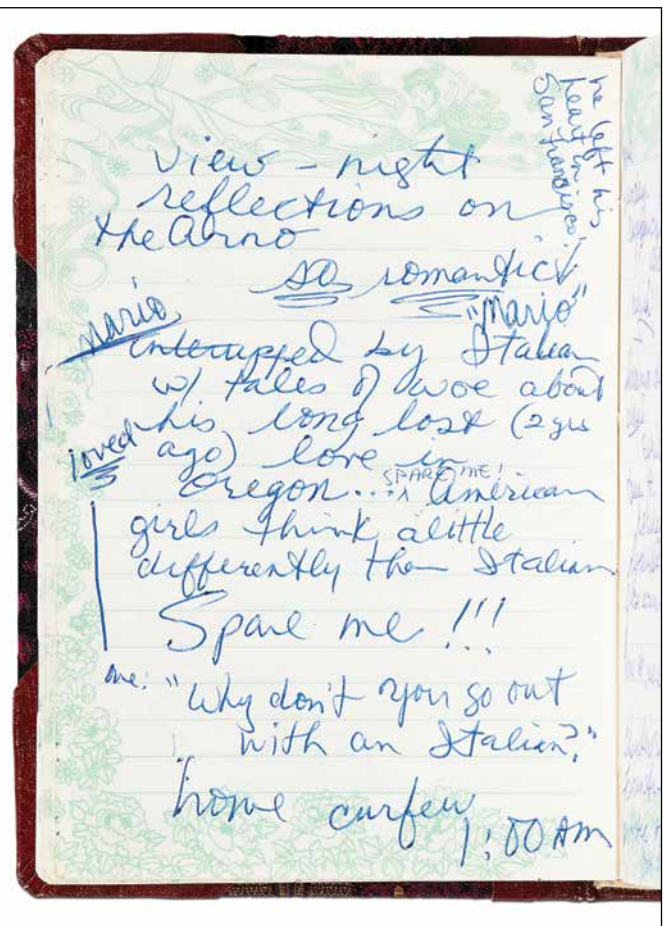 he left his
heart in
San Francisco!
view – night
reflections on
the Arno
so romantic!
"Mario"
Mario
interupped by Italian
w/ tales of woe about
his long lost (2 yrs
ago) love in
loved
SPARE ME!
Oregon... ^ American
girls think alittle
differently then Italian
Spare me !!!
me: "Why don't you go out
with an Italian?"
home curfew
1:00 AM